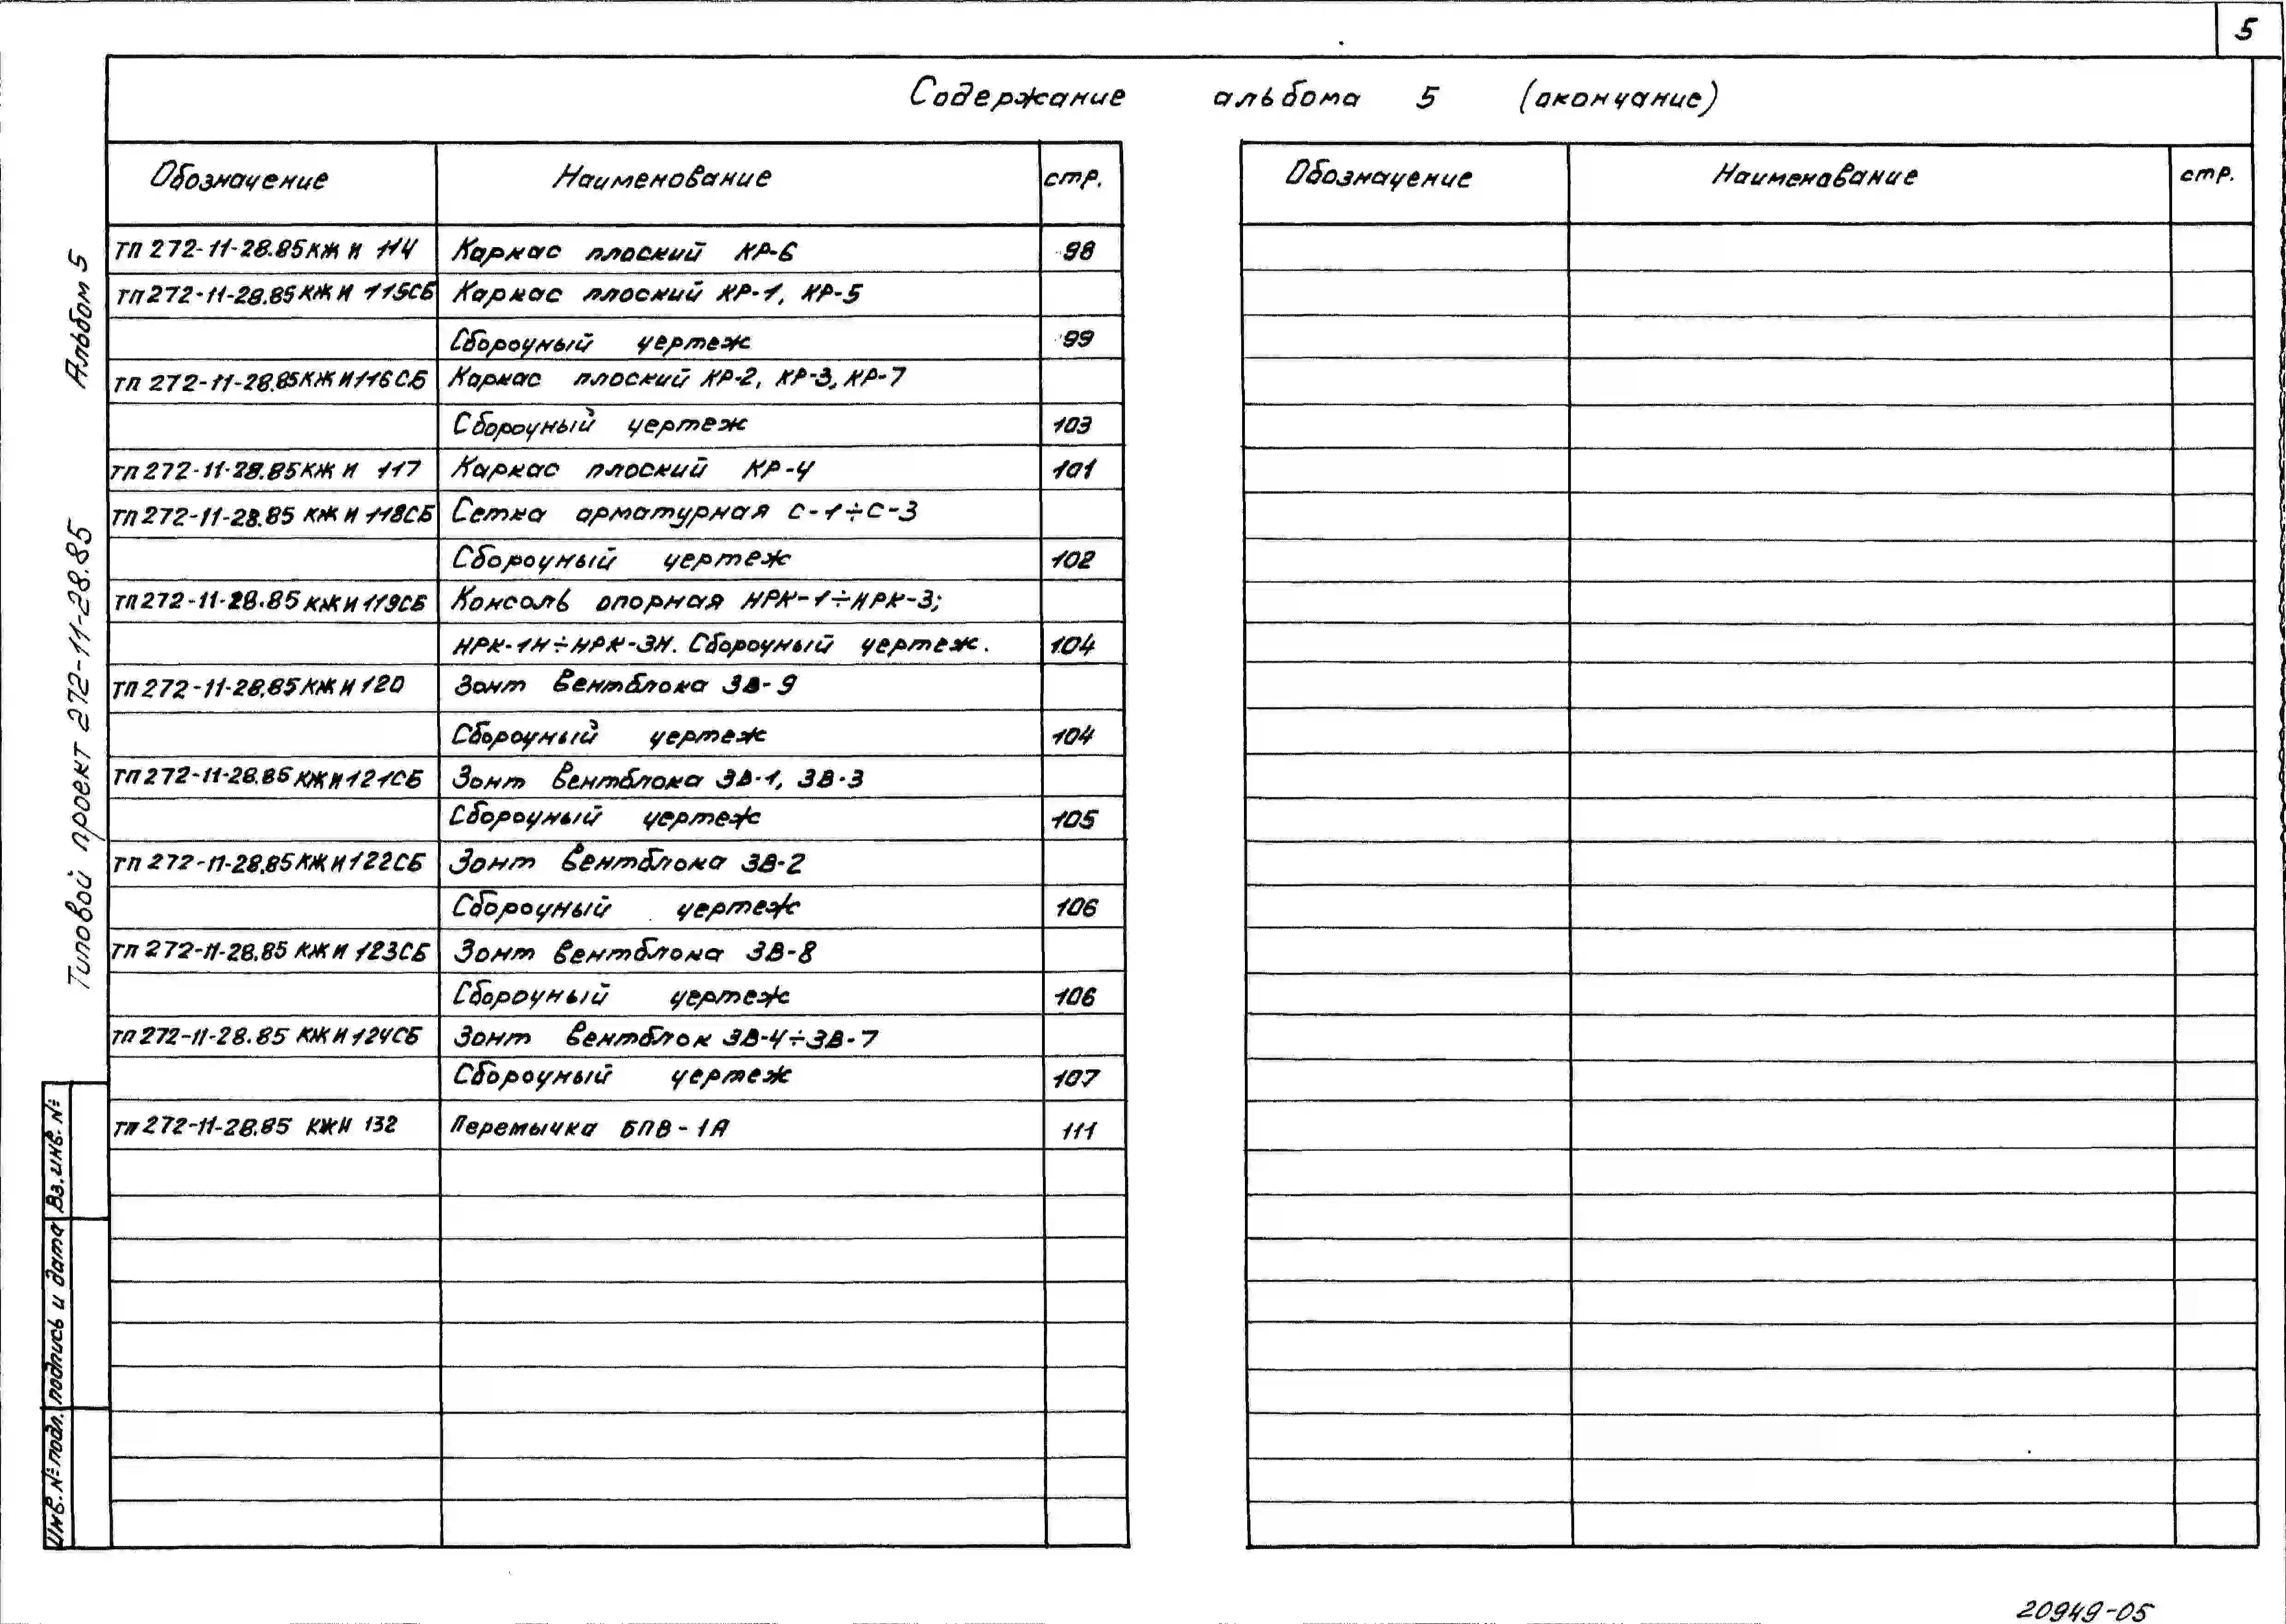 5
Содержание альбома 5 (окончание)
Обозначение Наименование стр.
ТП 272-11-28.85 КЖИ 114 Каркас плоский КР-6 98
ТП 272-11-28.85 КЖИ 115СБ Каркас плоский КР-1, КР-5
Сборочный чертеж 99
ТП 272-11-28.85 КЖИ 116СБ Каркас плоский КР-2, КР-3, КР-7
Сборочный чертеж 103
ТП 272-11-28.85 КЖИ 117 Каркас плоский КР-4 101
ТП 272-11-28.85 КЖИ 118СБ Сетка арматурная С-1÷С-3
Сборочный чертеж 102
ТП 272-11-28.85 КЖИ 119СБ Консоль опорная НРК-1÷НРК-3;
НРК-1Н÷НРК-3Н. Сборочный чертеж. 104
ТП 272-11-28.85 КЖИ 120 Зонт вентблока ЗВ-9
Сборочный чертеж 104
ТП 272-11-28.85 КЖИ 121СБ Зонт вентблока ЗВ-1, ЗВ-3
Сборочный чертеж 105
ТП 272-11-28.85 КЖИ 122СБ Зонт вентблока ЗВ-2
Сборочный чертеж 106
ТП 272-11-28.85 КЖИ 123СБ Зонт вентблока ЗВ-8
Сборочный чертеж 106
ТП 272-11-28.85 КЖИ 124СБ Зонт вентблок ЗВ-4÷ЗВ-7
Сборочный чертеж 107
ТП 272-11-28.85 КЖИ 132 Перемычка БПВ-1А 111
Обозначение Наименование стр.
Альбом 5
Типовой проект 272-11-28.85
Вз.инв.№
подпись и дата
Инв.№подл.
20949-05